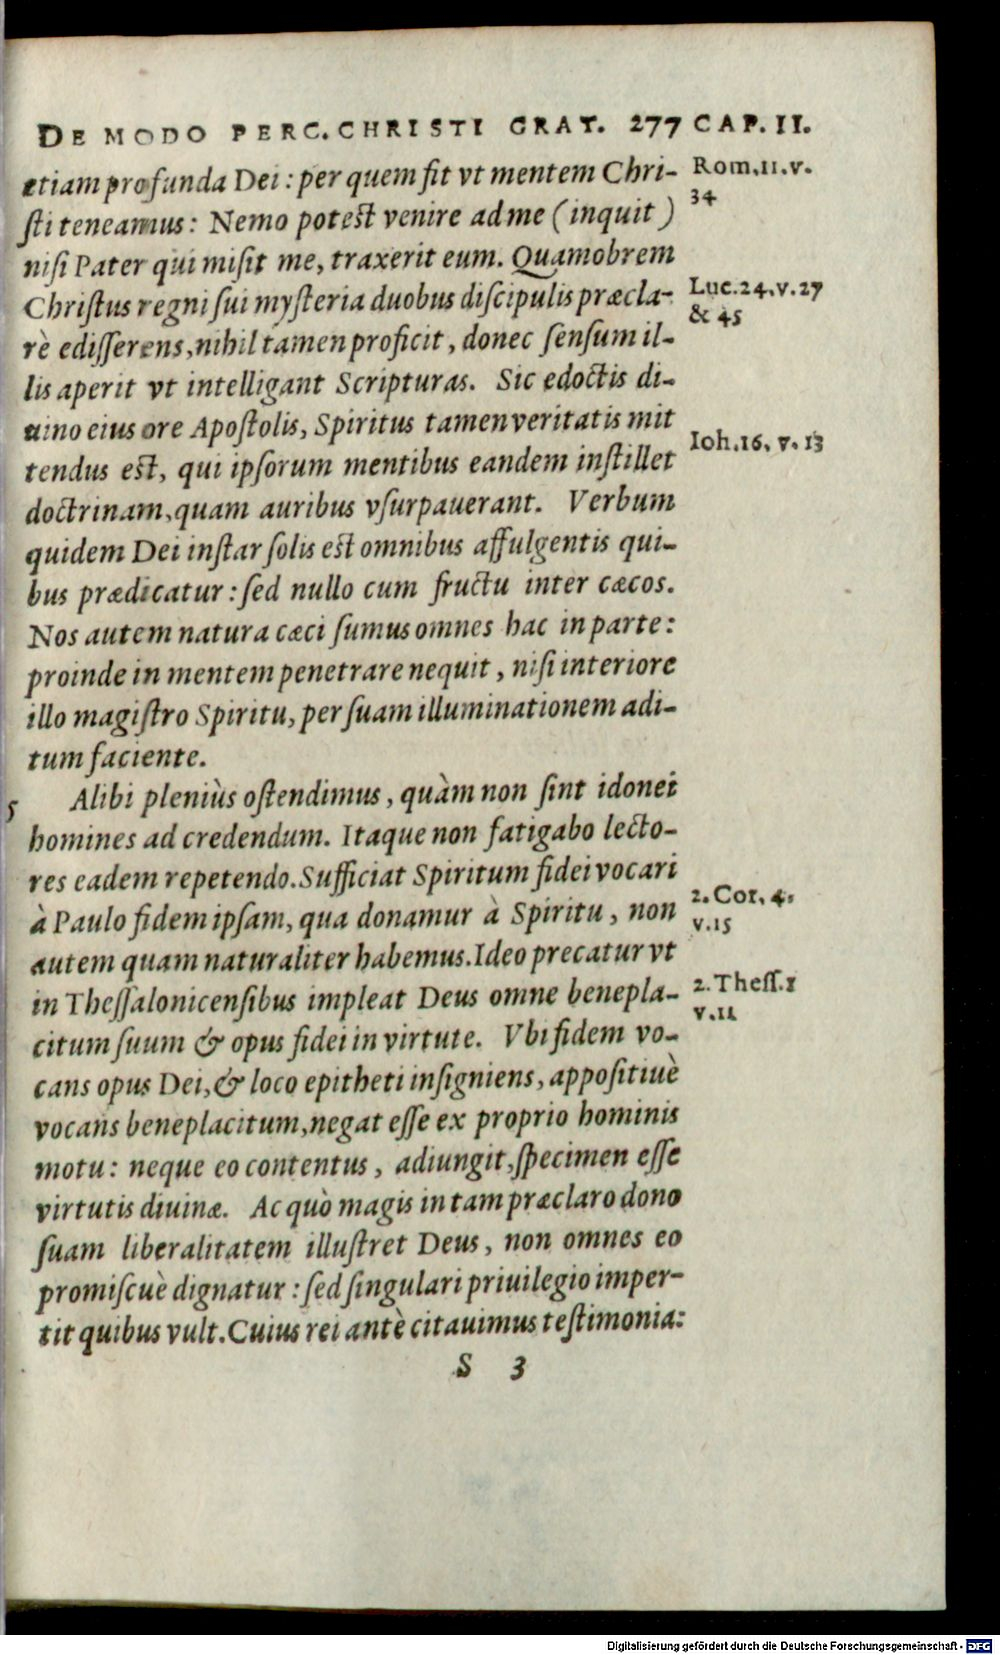 DE MODO PERC. CHRISTI GRAT. 277 CAP. II.
etiam profunda Dei : per quem fit vt mentem Chri-
Rom.11.v.
34
ſti teneamus : Nemo poteſt venire ad me ( inquit )
niſi Pater qui miſit me, traxerit eum. Quamobrem
Chriſtus regni ſui myſteria duobus diſcipulis præcla-
Luc.24.v.27
& 45
rè ediſſerens, nihil tamen proficit, donec ſenſum il-
lis aperit vt intelligant Scripturas. Sic edoctis di-
uino eius ore Apoſtolis, Spiritus tamen veritatis mit
Ioh.16. v. 13
tendus eſt, qui ipſorum mentibus eandem inſtillet
doctrinam, quam auribus vſurpauerant. Verbum
quidem Dei inſtar ſolis eſt omnibus affulgentis qui-
bus prædicatur : ſed nullo cum fructu inter cæcos.
Nos autem natura cæci ſumus omnes hac in parte :
proinde in mentem penetrare nequit, niſi interiore
illo magiſtro Spiritu, per ſuam illuminationem adi-
tum faciente.
5 Alibi pleniùs oſtendimus, quàm non ſint idonei
homines ad credendum. Itaque non fatigabo lecto-
res eadem repetendo. Sufficiat Spiritum fidei vocari
2. Cor. 4.
v.15
à Paulo fidem ipſam, qua donamur à Spiritu, non
autem quam naturaliter habemus. Ideo precatur vt
in Theſſalonicenſibus impleat Deus omne benepla-
2. Theſſ.1
v.11
citum ſuum & opus fidei in virtute. Vbi fidem vo-
cans opus Dei, & loco epitheti inſigniens, appoſitiuè
vocans beneplacitum, negat eſſe ex proprio hominis
motu : neque eo contentus, adiungit, ſpecimen eſſe
virtutis diuinæ. Ac quò magis in tam præclaro dono
ſuam liberalitatem illuſtret Deus, non omnes eo
promiſcuè dignatur : ſed ſingulari priuilegio imper-
tit quibus vult. Cuius rei antè citauimus teſtimonia:
S 3
Digitalisierung gefördert durch die Deutsche Forschungsgemeinschaft - DFG